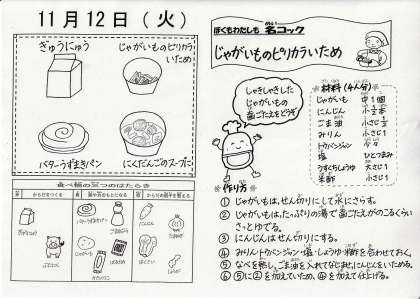 11月12日(火)
ぎゅうにゅう
じゃがいものピリカラいため
バターうずまきパン
にくだんごのスープに
食べ物の三つのはたらき
ぼくもわたしも 名コック
じゃがいものピリカラいため
しゃきしゃきした
じゃがいもの
歯ごたえをどうぞ
材料(4人分)
じゃがいも 中1個
にんじん
ごま油
みりん 小さじ1
トウバンジャン
塩 ひとつまみ
うすくちしょうゆ 大さじ1
米酢 小さじ1
作り方
① じゃがいもは、せん切りにして水にさらす。
② じゃがいもは、たっぷりの湯で歯ごたえがのこるくらい
さっとゆでる。
③ にんじんはせん切りにする。
④ みりん・トウバンジャン・塩・しょうゆ・米酢を合わせておく。
⑤ なべを熱し、ごま油を入れてなじませ、にんじんをいためる。
⑥ ⑤に②を加えていため、④を加えて仕上げる。